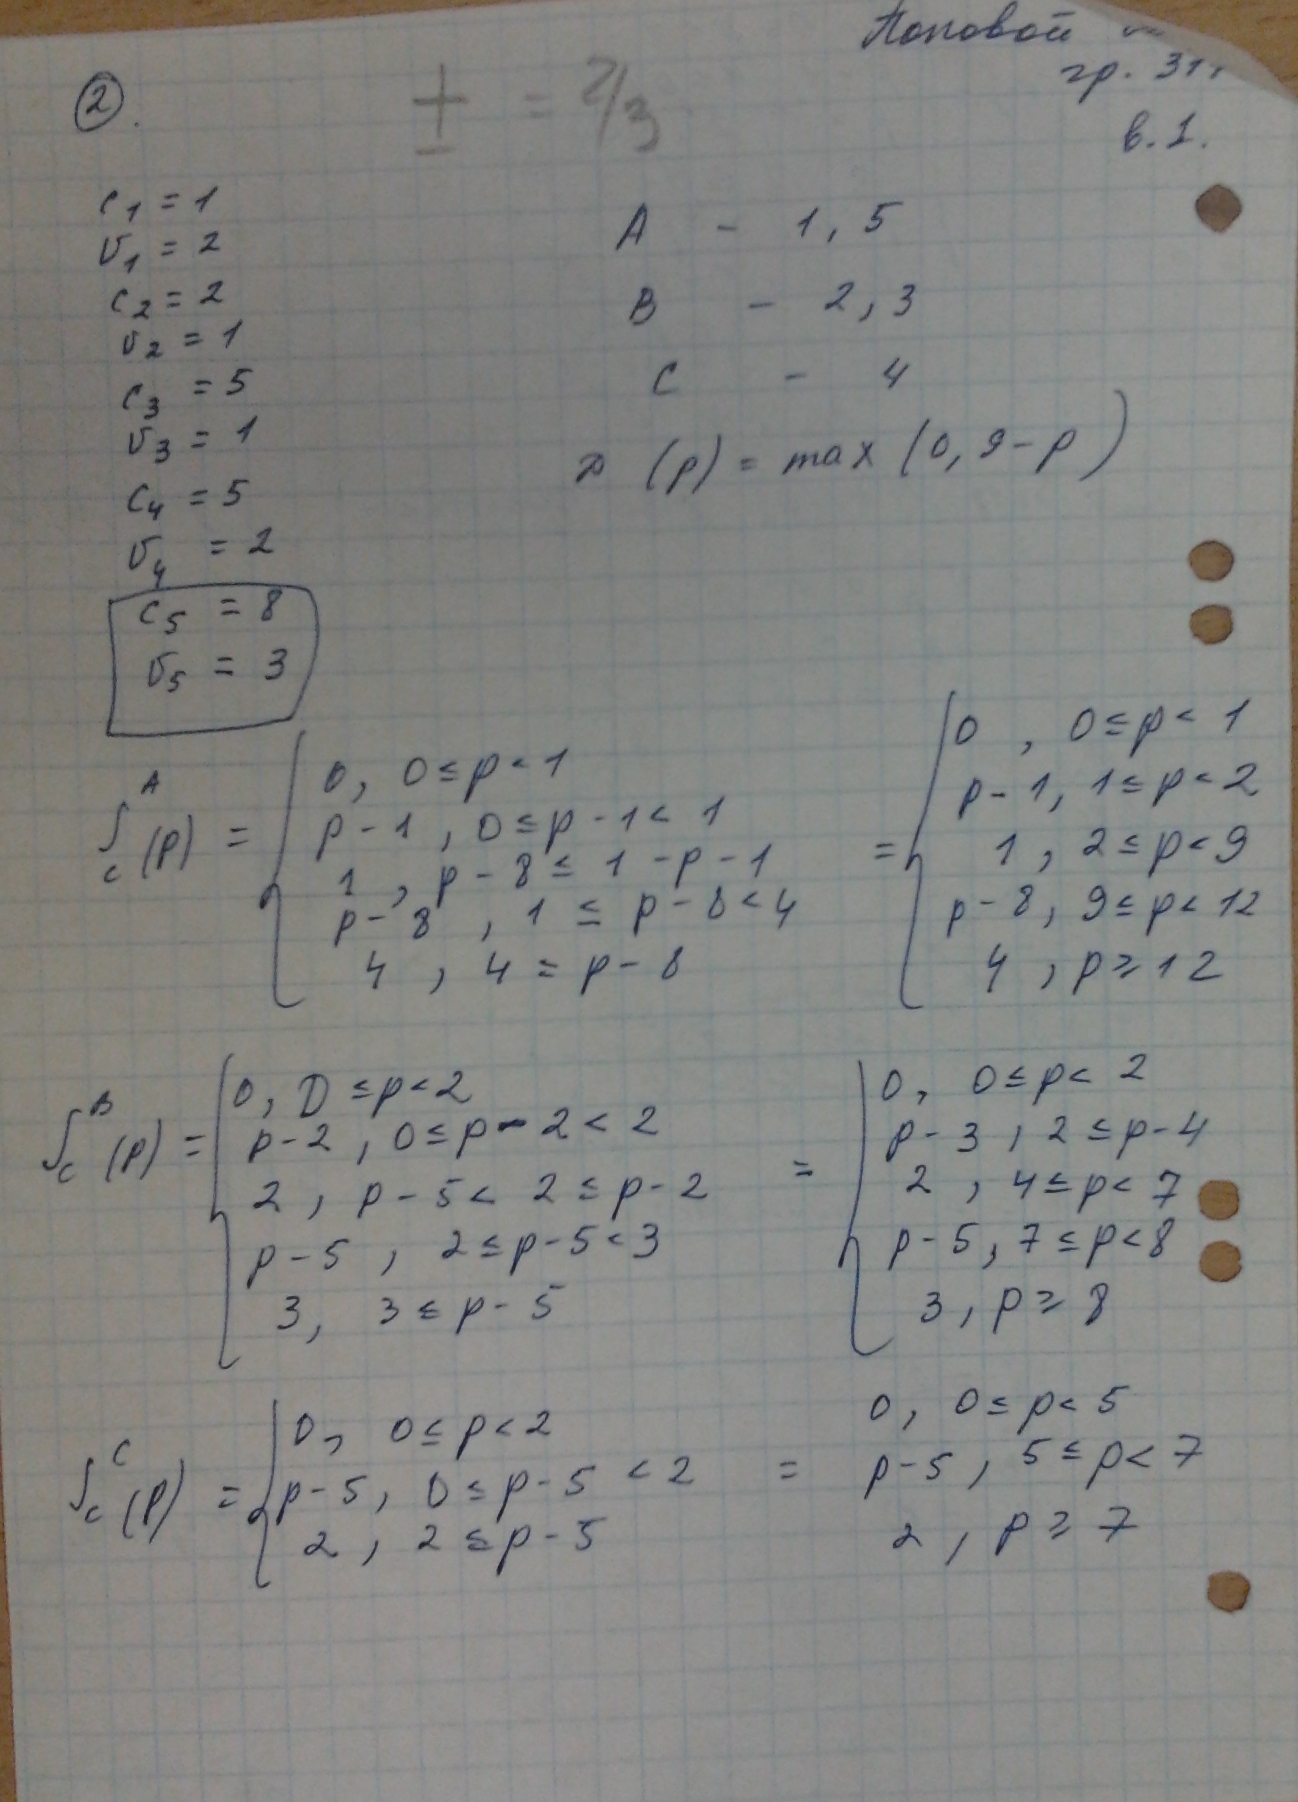 Поповой
гр. 311
в. 1.
②.
± = 2/3
c₁ = 1
v₁ = 2
c₂ = 2
v₂ = 1
c₃ = 5
v₃ = 1
c₄ = 5
v₄ = 2
c₅ = 8
v₅ = 3
A - 1, 5
B - 2, 3
C - 4
D (p) = max (0, 9-p)
S_c^A (p) = { 0, 0 ≤ p < 1
p - 1, 0 ≤ p - 1 < 1
1, p - 8 ≤ 1 - p - 1
p - 8, 1 ≤ p - 8 < 4
4, 4 = p - 8
= { 0, 0 ≤ p < 1
p - 1, 1 ≤ p < 2
1, 2 ≤ p < 9
p - 8, 9 ≤ p < 12
4, p ≥ 12
S_c^B (p) = { 0, 0 ≤ p < 2
p - 2, 0 ≤ p - 2 < 2
2, p - 5 < 2 ≤ p - 2
p - 5, 2 ≤ p - 5 < 3
3, 3 ≤ p - 5
= { 0, 0 ≤ p < 2
p - 3, 2 ≤ p - 4
2, 4 ≤ p < 7
p - 5, 7 ≤ p < 8
3, p ≥ 8
S_c^C (p) = { 0, 0 ≤ p < 2
p - 5, 0 ≤ p - 5 < 2
2, 2 ≤ p - 5
= 0, 0 ≤ p < 5
p - 5, 5 ≤ p < 7
2, p ≥ 7